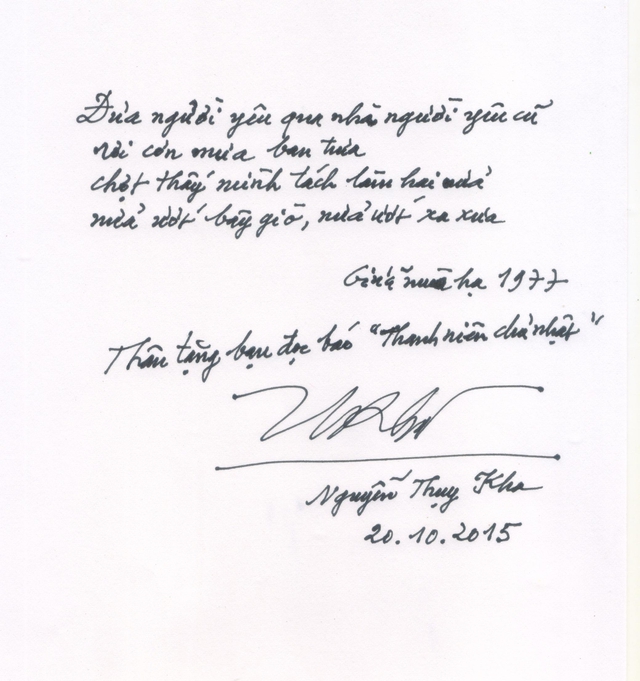 Đưa người yêu qua nhà người yêu cũ
rồi cơn mưa ban trưa
chợt thấy mình tách làm hai nửa
nửa ướt bây giờ, nửa ướt xa xưa
mùa hạ 1977
Thân tặng bạn đọc báo "Thanh niên chủ nhật"
Nguyễn Thụy Kha
20.10.2015